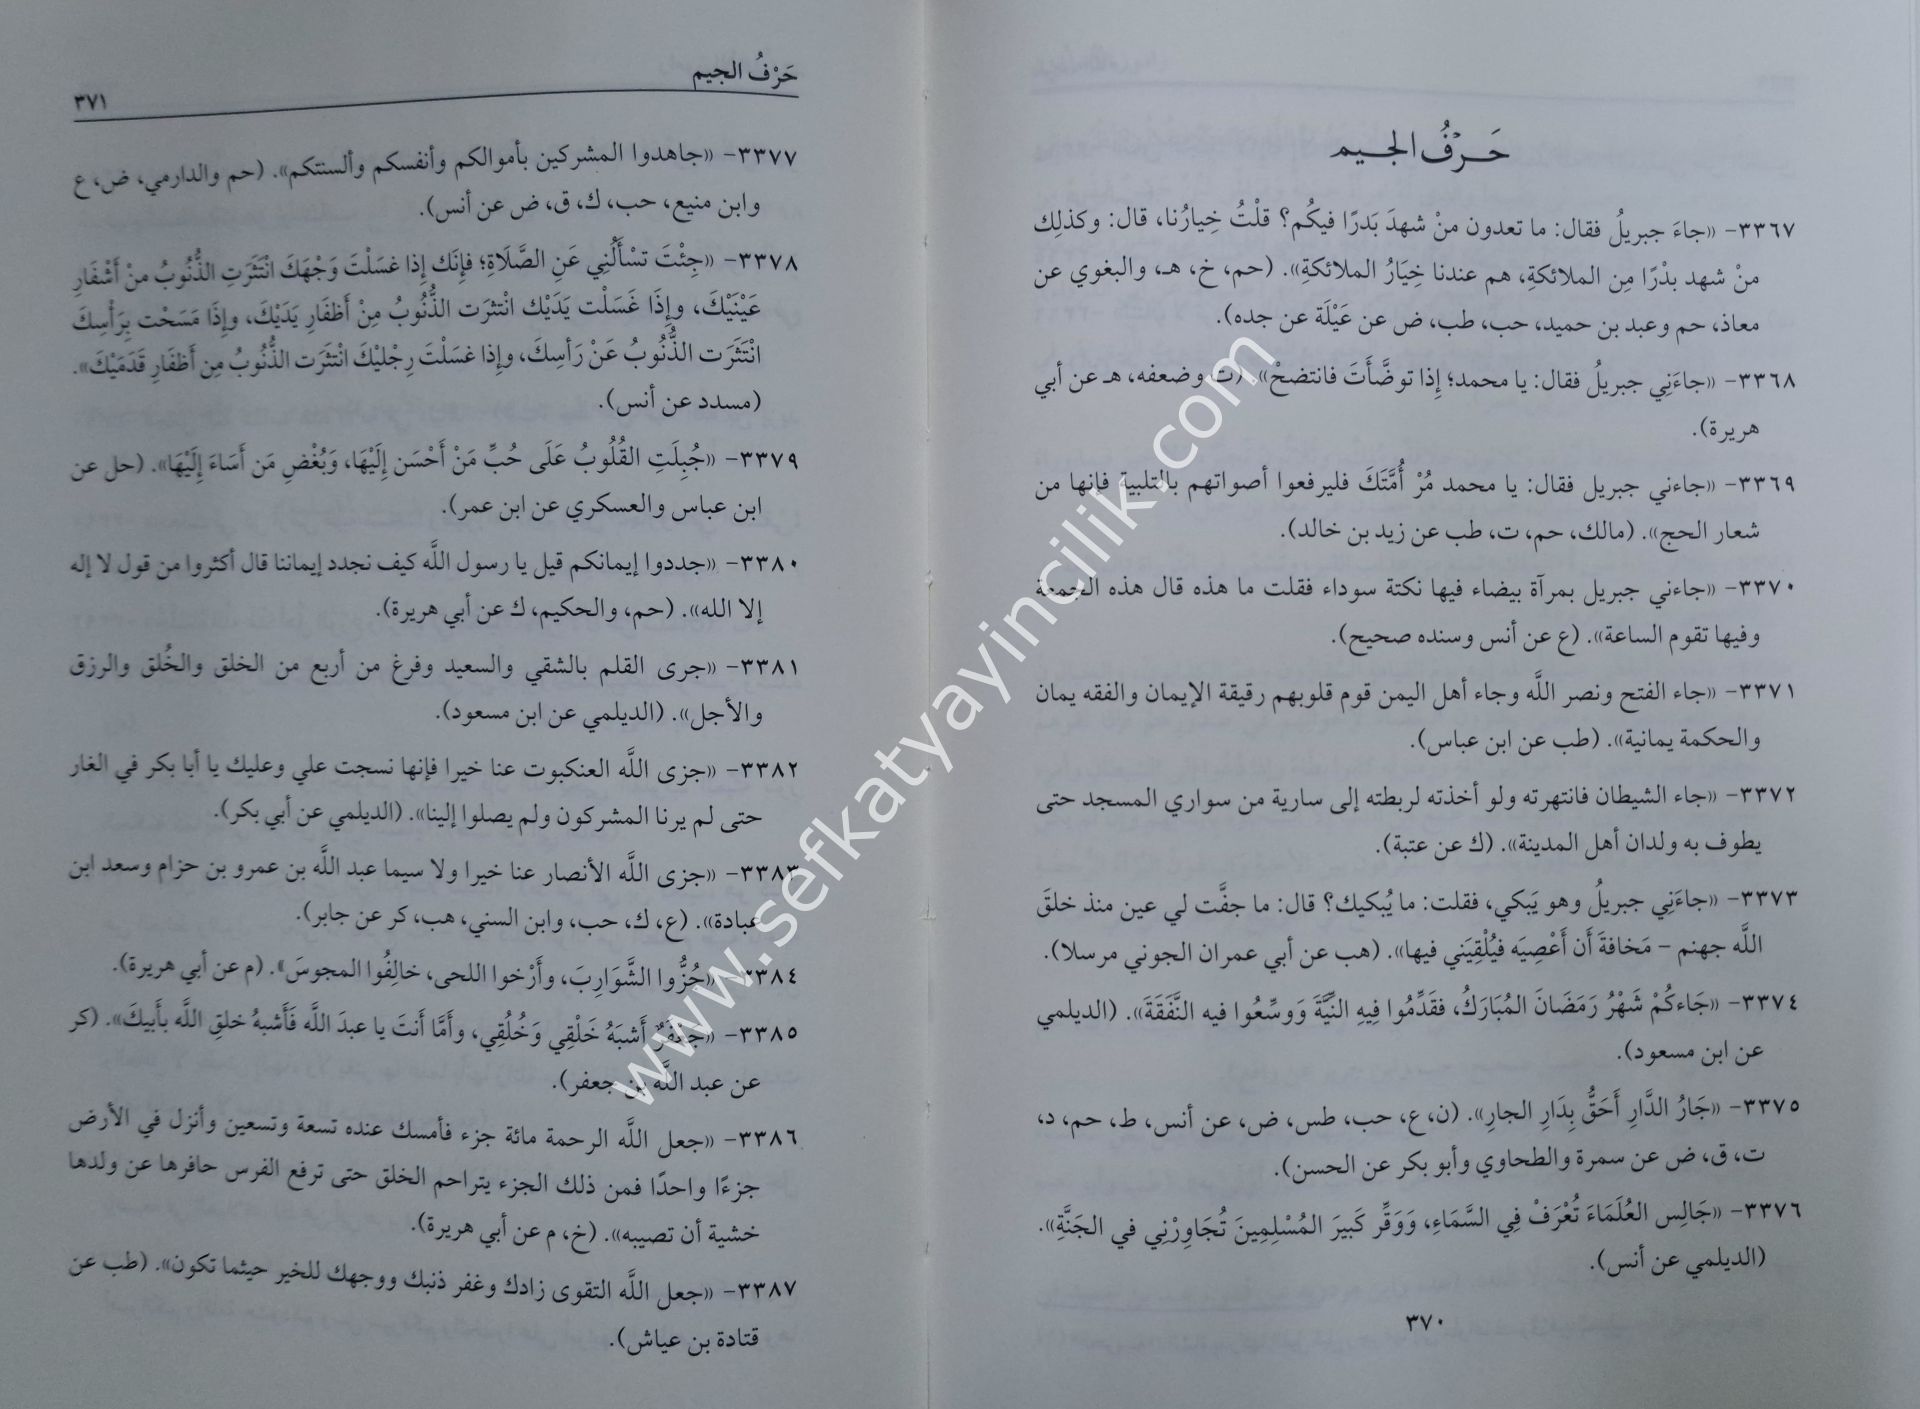 حَرْفُ الجيم
٣٣٦٧- «جاءَ جبريلُ فقال: ما تعدون منْ شهدَ بَدرًا فيكُم؟ قلْتُ خِيارُنا، قال: وكذلِك
منْ شهد بدْرًا مِن الملائكةِ، هم عندنا خِيَارُ الملائكةِ». (حم، خ، هـ، والبغوي عن
معاذ، حم وعبد بن حميد، حب، طب، ض عن عَيْلَة عن جده).
٣٣٦٨- «جاءَنِي جبريلُ فقال: يا محمد؛ إِذا توضَّأَتَ فانتضحْ». (ت وضعفه، هـ عن أبي
هريرة).
٣٣٦٩- «جاءني جبريل فقال: يا محمد مُرْ أُمَّتَكَ فليرفعوا أصواتهم بالتلبية فإنها من
شعار الحج». (مالك، حم، ت، طب عن زيد بن خالد).
٣٣٧٠- «جاءني جبريل بمرآة بيضاء فيها نكتة سوداء فقلت ما هذه قال هذه الجمعة
وفيها تقوم الساعة». (ع عن أنس وسنده صحيح).
٣٣٧١- «جاء الفتح ونصر اللَّه وجاء أهل اليمن قوم قلوبهم رقيقة الإيمان والفقه يمان
والحكمة يمانية». (طب عن ابن عباس).
٣٣٧٢- «جاء الشيطان فانتهرته ولو أخذته لربطته إلى سارية من سواري المسجد حتى
يطوف به ولدان أهل المدينة». (ك عن عتبة).
٣٣٧٣- «جاءَنِي جبريلُ وهو يَبكي، فقلت: ما يُبكيك؟ قال: ما جفَّت لي عين منذ خلقَ
اللَّه جهنم – مَخافةَ أَن أَعْصِيَه فيُلْقِيَني فيها». (هب عن أبي عمران الجوني مرسلا).
٣٣٧٤- «جَاءكُمْ شَهْرُ رَمَضَانَ المُبَارَكُ، فقَدِّمُوا فِيهِ النِّيَّةَ وَوسِّعُوا فيه النَّفَقَةَ». (الديلمي
عن ابن مسعود).
٣٣٧٥- «جَارُ الدَّارِ أَحَقُّ بِدَارِ الجارِ». (ن، ع، حب، طس، ض، عن أنس، ط، حم، د،
ت، ق، ض عن سمرة والطحاوي وأبو بكر عن الحسن).
٣٣٧٦- «جَالِس العُلَمَاءَ تُعْرَفْ فِي السَّمَاءِ، وَوَقِّر كَبيرَ المُسْلِمِينَ تُجَاوِرْنِي في الجَنَّةِ».
(الديلمي عن أنس).
٣٧٠
حَرْفُ الجيم
٣٧١
٣٣٧٧- «جاهدوا المشركين بأموالكم وأنفسكم وألسنتكم». (حم والدارمي، ض، ع
وابن منيع، حب، ك، ق، ض عن أنس).
٣٣٧٨- «جِئْتَ تسْأَلُنِي عَنِ الصَّلَاةِ؛ فإِنَك إِذا غسَلْتَ وَجْهَكَ انْتَثَرَتِ الذُّنُوبُ منْ أَشْفَارِ
عَيْنَيْكَ، وإِذَا غَسَلْت يَدَيْك انْتثرَت الذُّنُوبُ مِنْ أَظفَارِ يَدَيْكَ، وإِذَا مَسَحْت بِرَأْسِكَ
انْتَثَرَت الذُّنُوبُ عَنْ رَأسِكَ، وإِذا غسَلْتَ رِجْليْكَ انْتثَرَت الذُّنُوبُ مِن أَظفَارِ قَدَمَيْكَ».
(مسدد عن أنس).
٣٣٧٩- «جُبِلَتِ القُلُوبُ عَلَى حُبِّ مَنْ أَحْسَن إِلَيْهَا، وَبُغْضِ مَن أَسَاءَ إِلَيْهَا». (حل عن
ابن عباس والعسكري عن ابن عمر).
٣٣٨٠- «جددوا إيمانكم قيل يا رسول اللَّه كيف نجدد إيماننا قال أكثروا من قول لا إله
إلا الله». (حم، والحكيم، ك عن أبي هريرة).
٣٣٨١- «جرى القلم بالشقي والسعيد وفرغ من أربع من الخلق والخُلق والرزق
والأجل». (الديلمي عن ابن مسعود).
٣٣٨٢- «جزى اللَّه العنكبوت عنا خيرا فإنها نسجت علي وعليك يا أبا بكر في الغار
حتى لم يرنا المشركون ولم يصلوا إلينا». (الديلمي عن أبي بكر).
٣٣٨٣- «جزى اللَّه الأنصار عنا خيرا ولا سيما عبد اللَّه بن عمرو بن حزام وسعد ابن
عبادة». (ع، ك، حب، وابن السني، هب، كر عن جابر).
٣٣٨٤- «جُزُّوا الشَّوَارِبَ، وأَرْخوا اللحى، خالِفُوا المجوسَ». (م عن أبي هريرة).
٣٣٨٥- «جعْفَرٌ أَشبَهُ خَلْقِي وَخُلُقِي، وأَمَّا أَنتَ يا عبدَ اللَّه فَأَشبهُ خلقِ اللَّه بأَبيكَ». (كر
عن عبد اللَّه بن جعفر).
٣٣٨٦- «جعل اللَّه الرحمة مائة جزء فأمسك عنده تسعة وتسعين وأنزل في الأرض
جزءًا واحدًا فمن ذلك الجزء يتراحم الخلق حتى ترفع الفرس حافرها عن ولدها
خشية أن تصيبه». (خ، م عن أبي هريرة).
٣٣٨٧- «جعل اللَّه التقوى زادك وغفر ذنبك ووجهك للخير حيثما تكون». (طب عن
قتادة بن عياش).
www.sefkatyayincilik.com